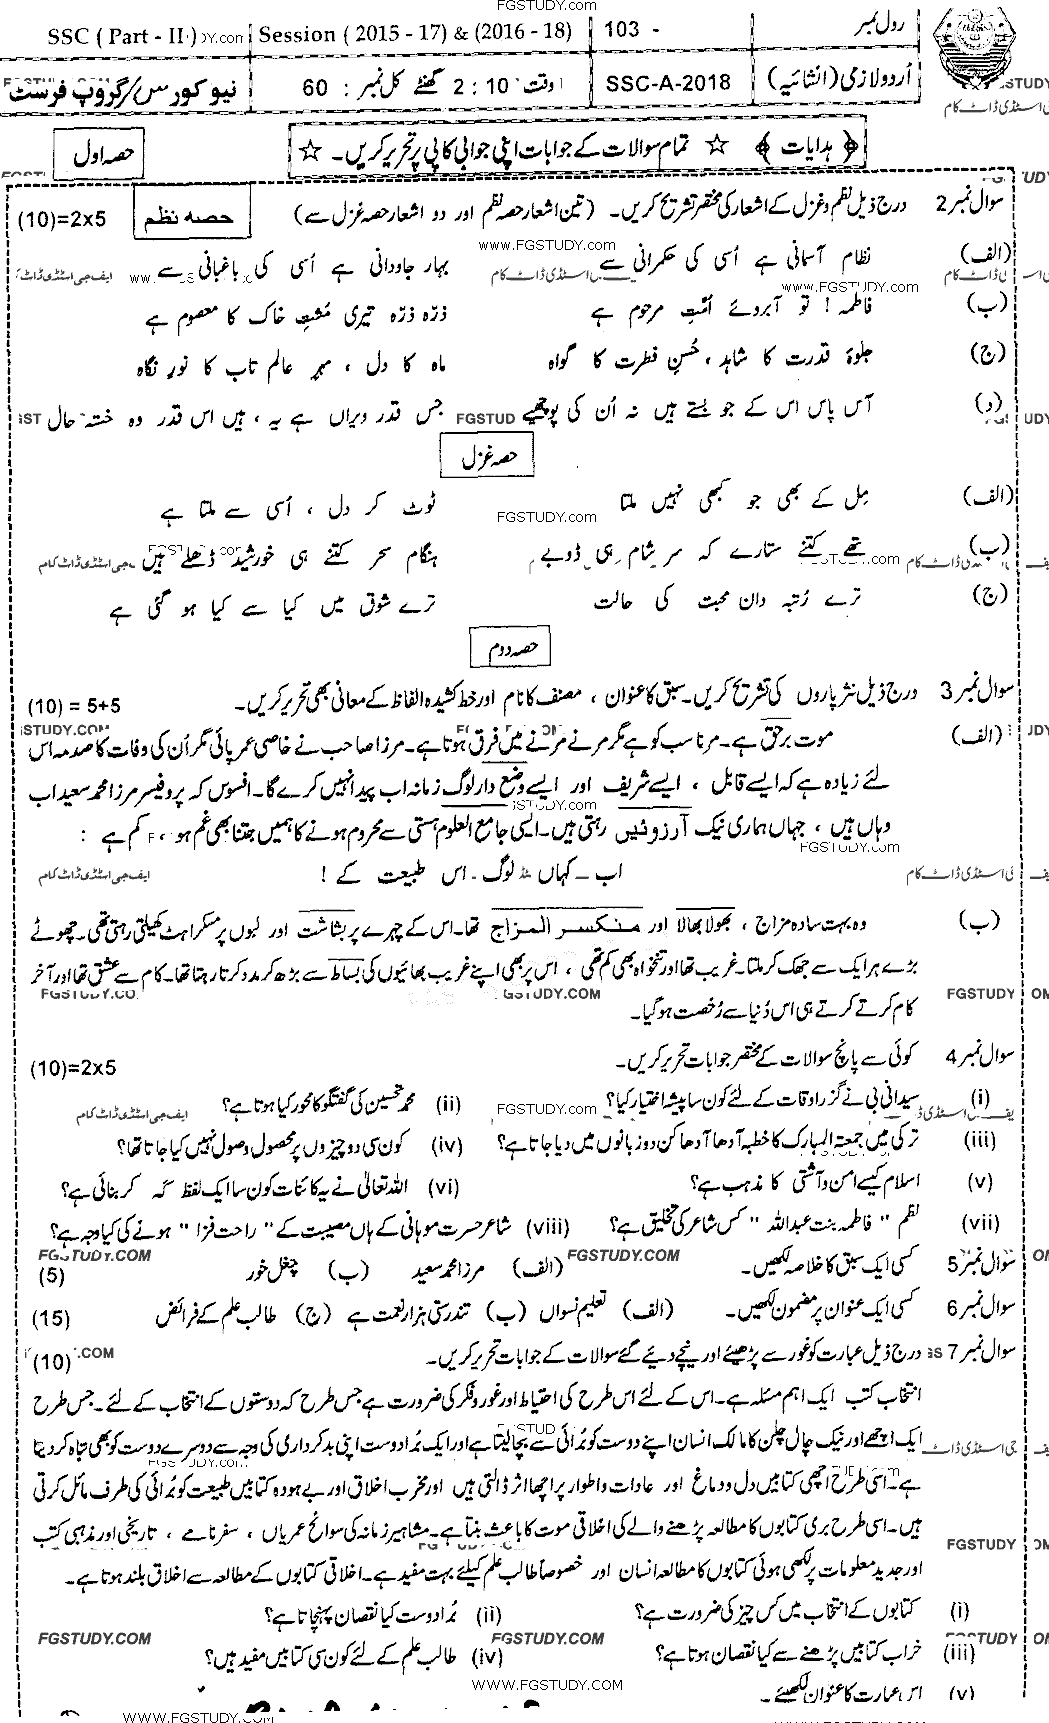 FGSTUDY.com
رول نمبر 103 - Session ( 2015 - 17) & (2016 - 18) SSC ( Part - II )
اُردو لازمی (انشائیہ) SSC-A-2018 وقت : 2:10 گھنٹے کل نمبر : 60 نیو کورس/گروپ فرسٹ
﴿ ہدایات ﴾ ☆ تمام سوالات کے جوابات اپنی جوابی کاپی پر تحریر کریں۔ ☆ حصہ اول
سوال نمبر 2 درج ذیل نظم و غزل کے اشعار کی مختصر تشریح کریں۔ (تین اشعار حصہ نظم اور دو اشعار حصہ غزل سے) حصہ نظم (10)=2x5
www.FGSTUDY.com
(الف) نظام آسمانی ہے اُسی کی حکمرانی سے بہار جاودانی ہے اُسی کی باغبانی سے
www.FGSTUDY.com
(ب) فاطمہ ! تو آبروئے اُمّتِ مرحوم ہے ذرّہ ذرّہ تیری مُشتِ خاک کا معصوم ہے
(ج) جلوۂ قدرت کا شاہد ، حُسنِ فطرت کا گواہ ماہ کا دل ، مہرِ عالم تاب کا نورِ نگاہ
(د) آس پاس اس کے جو بستے ہیں نہ اُن کی پوچھیے جس قدر ویراں ہے یہ ، ہیں اس قدر وہ خستہ حال
حصہ غزل
(الف) مِل کے بھی جو کبھی نہیں ملتا ٹوٹ کر دل ، اُسی سے ملتا ہے
FGSTUDY.com
(ب) تھے کتنے ستارے کہ سرِ شام ہی ڈوبے ہنگام سحر کتنے ہی خورشید ڈھلے ہیں
(ج) ترے رُتبہ دانِ محبت کی حالت ترے شوق میں کیا سے کیا ہو گئی ہے
حصہ دوم
سوال نمبر 3 درج ذیل نثر پاروں کی تشریح کریں۔ سبق کا عنوان ، مصنف کا نام اور خط کشیدہ الفاظ کے معانی بھی تحریر کریں۔ (10) = 5+5
(الف) موت برحق ہے۔ مرنا سب کو ہے مگر مرنے مرنے میں فرق ہوتا ہے۔ مرزا صاحب نے خاصی عمر پائی مگر اُن کی وفات کا صدمہ اس
لئے زیادہ ہے کہ ایسے قابل ، ایسے شریف اور ایسے وضع دار لوگ زمانہ اب پیدا نہیں کرے گا۔ افسوس کہ پروفیسر مرزا محمد سعید اب
وہاں ہیں ، جہاں ہماری نیک آرزوئیں رہتی ہیں۔ ایسی جامع العلوم ہستی سے محروم ہونے کا ہمیں جتنا بھی غم ہو ، کم ہے :
FGSTUDY.com
اب کہاں لوگ اس طبیعت کے !
(ب) وہ بہت سادہ مزاج ، بھولا بھالا اور منکسر المزاج تھا۔ اس کے چہرے پر بشاشت اور لبوں پر مسکراہٹ کھیلتی رہتی تھی۔ چھوٹے
بڑے ہر ایک سے جھک کر ملتا۔ غریب تھا اور تنخواہ بھی کم تھی ، اس پر بھی اپنے غریب بھائیوں کی بساط سے بڑھ کر مدد کرتا رہتا تھا۔ کام سے عشق تھا اور آخر
کام کرتے کرتے ہی اس دُنیا سے رُخصت ہو گیا۔
سوال نمبر 4 کوئی سے پانچ سوالات کے مختصر جوابات تحریر کریں۔ (10)=2x5
(i) سیدانی بی نے گزر اوقات کے لئے کون سا پیشہ اختیار کیا؟ (ii) محمد تحسین کی گفتگو کا محور کیا ہوتا ہے؟
(iii) ترکی میں جمعۃ المبارک کا خطبہ آدھا آدھا کن دو زبانوں میں دیا جاتا ہے؟ (iv) کون سی دو چیزوں پر محصول وصول نہیں کیا جاتا تھا؟
(v) اسلام کیسے امن و آشتی کا مذہب ہے؟ (vi) اللہ تعالیٰ نے یہ کائنات کون سا ایک لفظ کہہ کر بنائی ہے؟
(vii) نظم " فاطمہ بنت عبداللہ " کس شاعر کی تخلیق ہے؟ (viii) شاعر حسرت موہانی کے ہاں مصیبت کے " راحت فزا " ہونے کی کیا وجہ ہے؟
FGSTUDY.COM FGSTUDY.COM
سوال نمبر 5 کسی ایک سبق کا خلاصہ لکھیں۔ (الف) مرزا محمد سعید (ب) چغل خور (5)
سوال نمبر 6 کسی ایک عنوان پر مضمون لکھیں۔ (الف) تعلیم نسواں (ب) تندرستی ہزار نعمت ہے (ج) طالب علم کے فرائض (15)
سوال نمبر 7 درج ذیل عبارت کو غور سے پڑھیئے اور نیچے دیئے گئے سوالات کے جوابات تحریر کریں۔ (10)
انتخاب کتب ایک اہم مسئلہ ہے۔ اس کے لئے اس طرح کی احتیاط اور غور و فکر کی ضرورت ہے جس طرح کہ دوستوں کے انتخاب کے لئے۔ جس طرح
ایک اچھے اور نیک چال چلن کا مالک انسان اپنے دوست کو بُرائی سے بچا لیتا ہے اور ایک بُرا دوست اپنی بدکرداری کی وجہ سے دوسرے دوست کو بھی تباہ کر دیتا
ہے۔ اسی طرح اچھی کتابیں دل و دماغ اور عادات و اطوار پر اچھا اثر ڈالتی ہیں اور مخرب اخلاق اور بے ہودہ کتابیں طبیعت کو بُرائی کی طرف مائل کرتی
ہیں۔ اسی طرح بری کتابوں کا مطالعہ پڑھنے والے کی اخلاقی موت کا باعث بنتا ہے۔ مشاہیر زمانہ کی سوانح عمریاں ، سفرنامے ، تاریخی اور مذہبی کتب
اور جدید معلومات پر لکھی ہوئی کتابوں کا مطالعہ انسان اور خصوصاً طالب علم کیلئے بہت مفید ہے۔ اخلاقی کتابوں کے مطالعہ سے اخلاق بلند ہوتا ہے۔
(i) کتابوں کے انتخاب میں کس چیز کی ضرورت ہے؟ (ii) بُرا دوست کیا نقصان پہنچاتا ہے؟
FGSTUDY.COM FGSTUDY.COM
(iii) خراب کتابیں پڑھنے سے کیا نقصان ہوتا ہے؟ (iv) طالب علم کے لئے کون سی کتابیں مفید ہیں؟
WWW.FGSTUDY.COM
(v) اس عبارت کا عنوان لکھیئے۔
WWW.FGSTUDY.COM WWW.FGSTUDY.COM